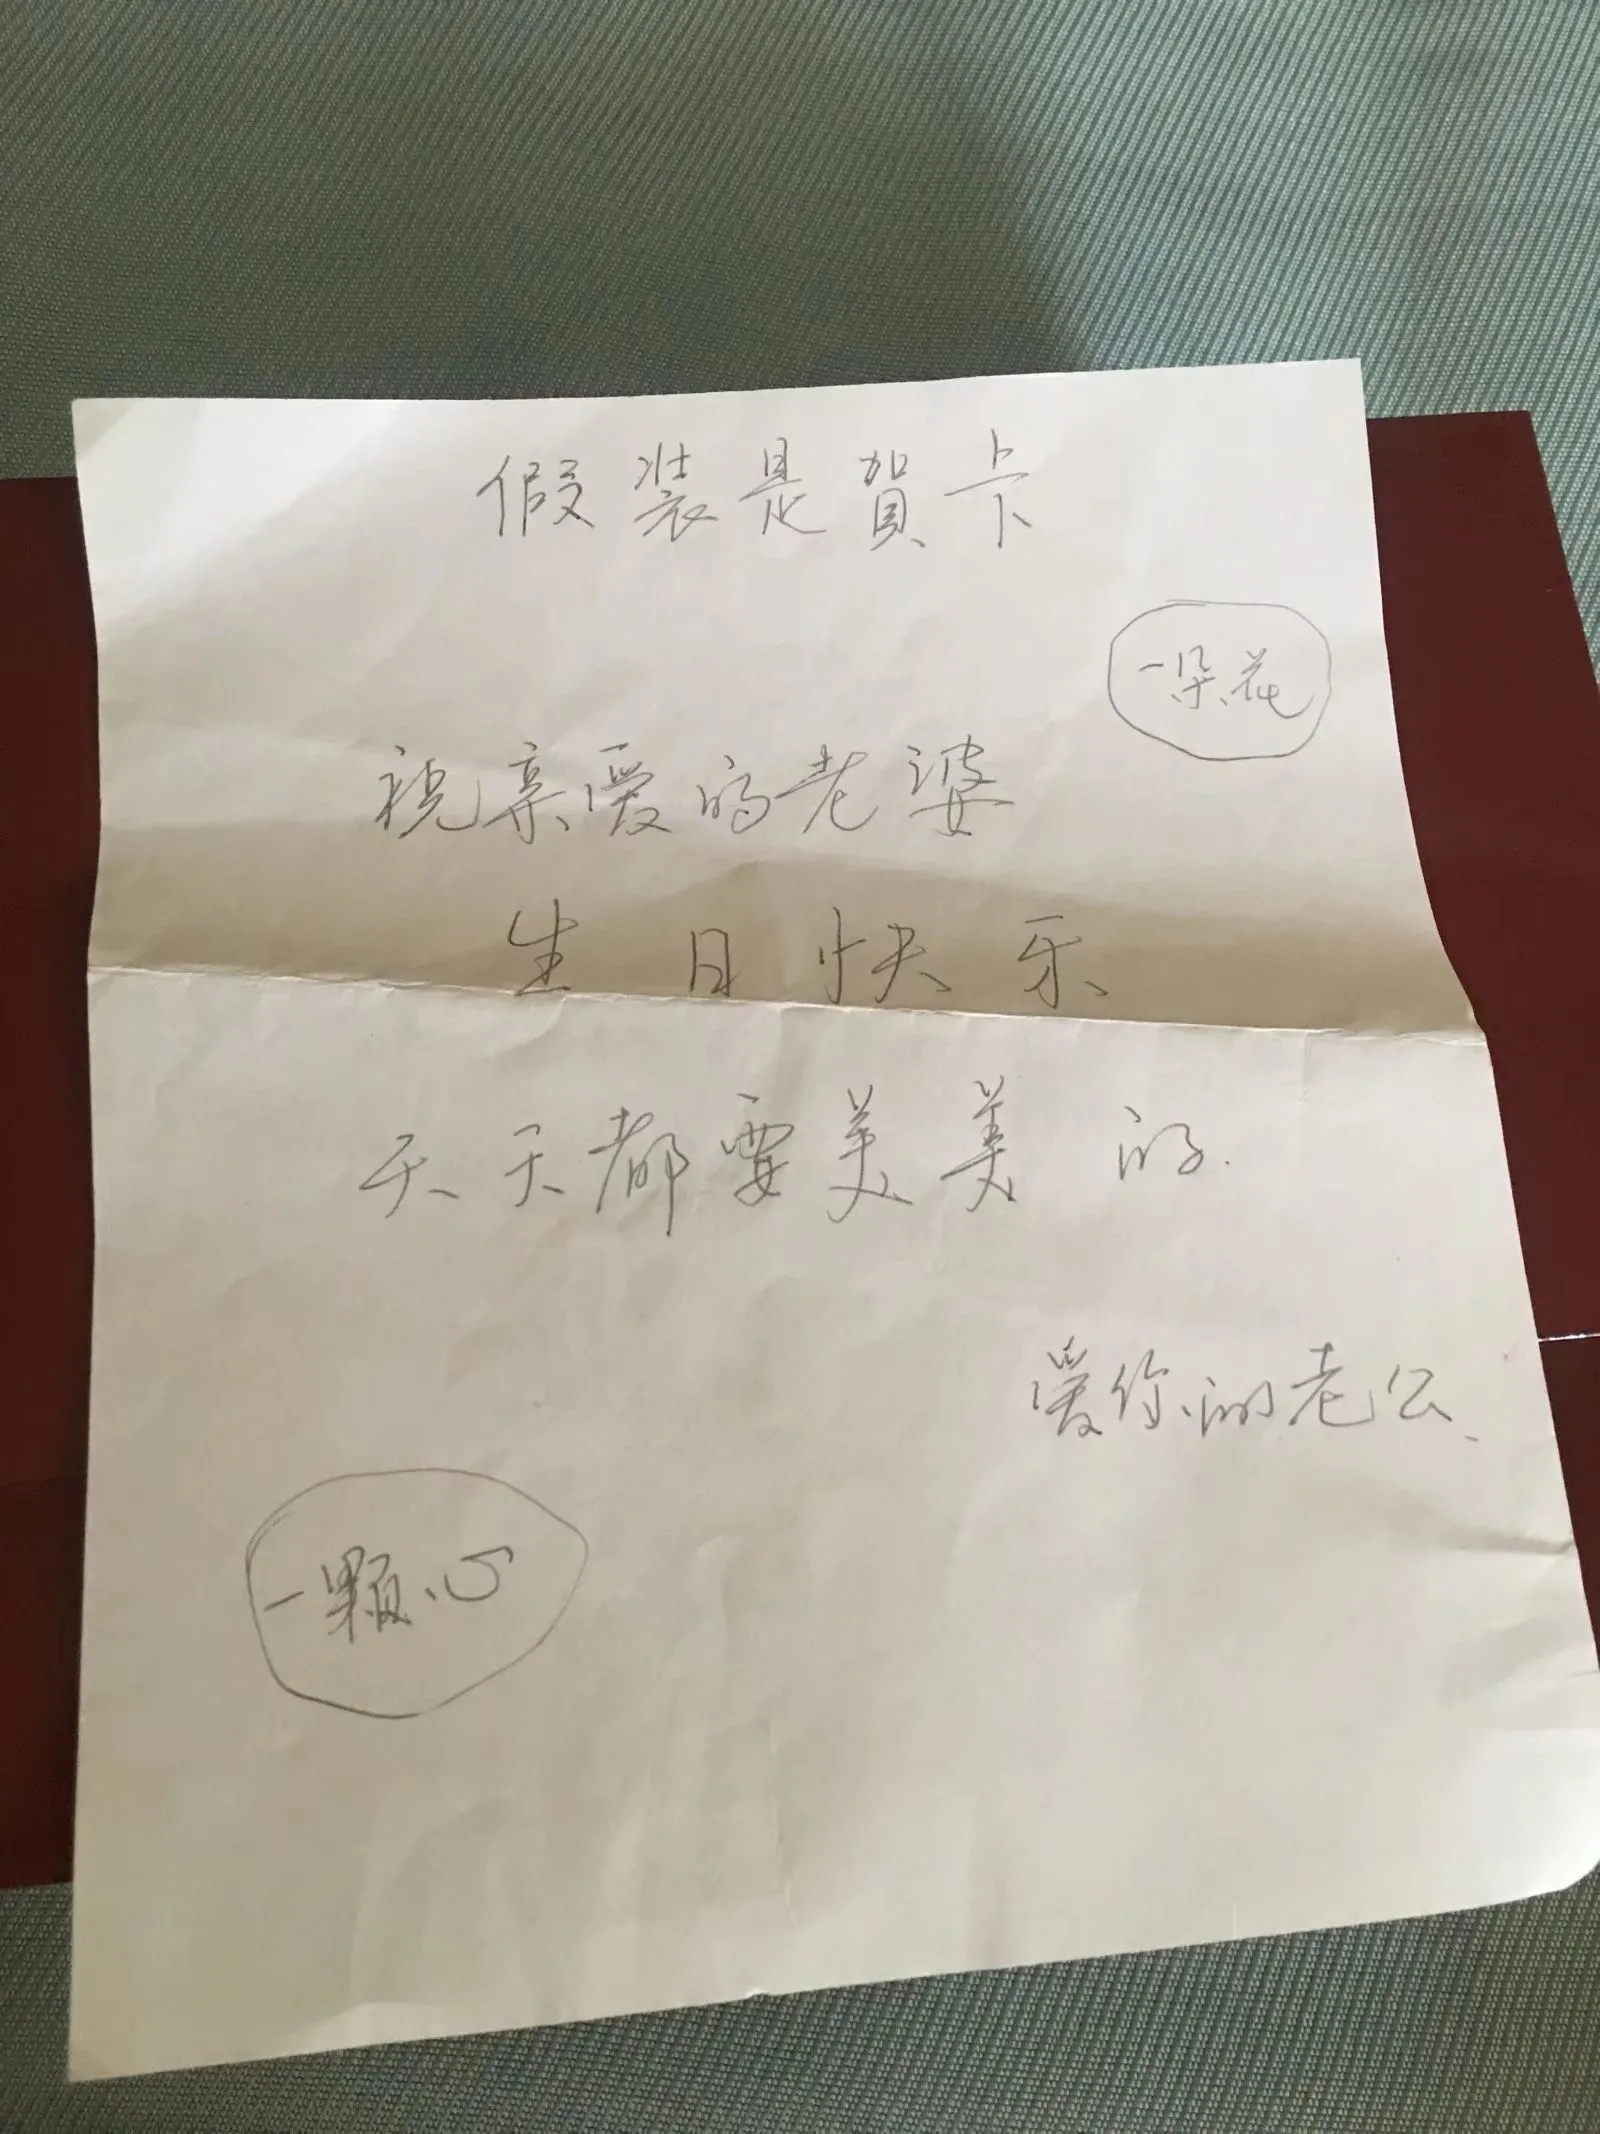 假装是賀卡
一朵花
祝亲爱的老婆
生日快乐
天天都要美美的.
爱你的老公
一颗心